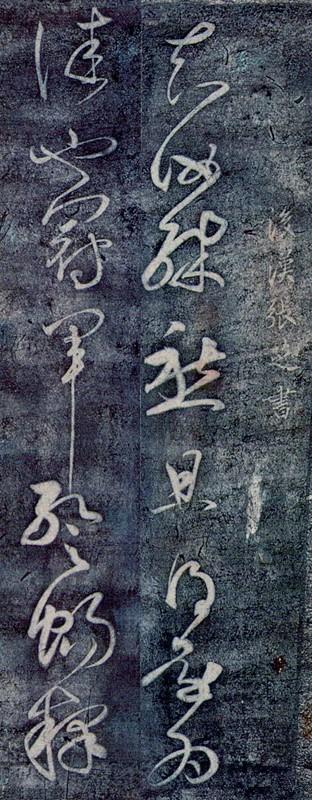 後漢張芝書
知汝殊愁且得還為
佳也冠軍暫暢釋